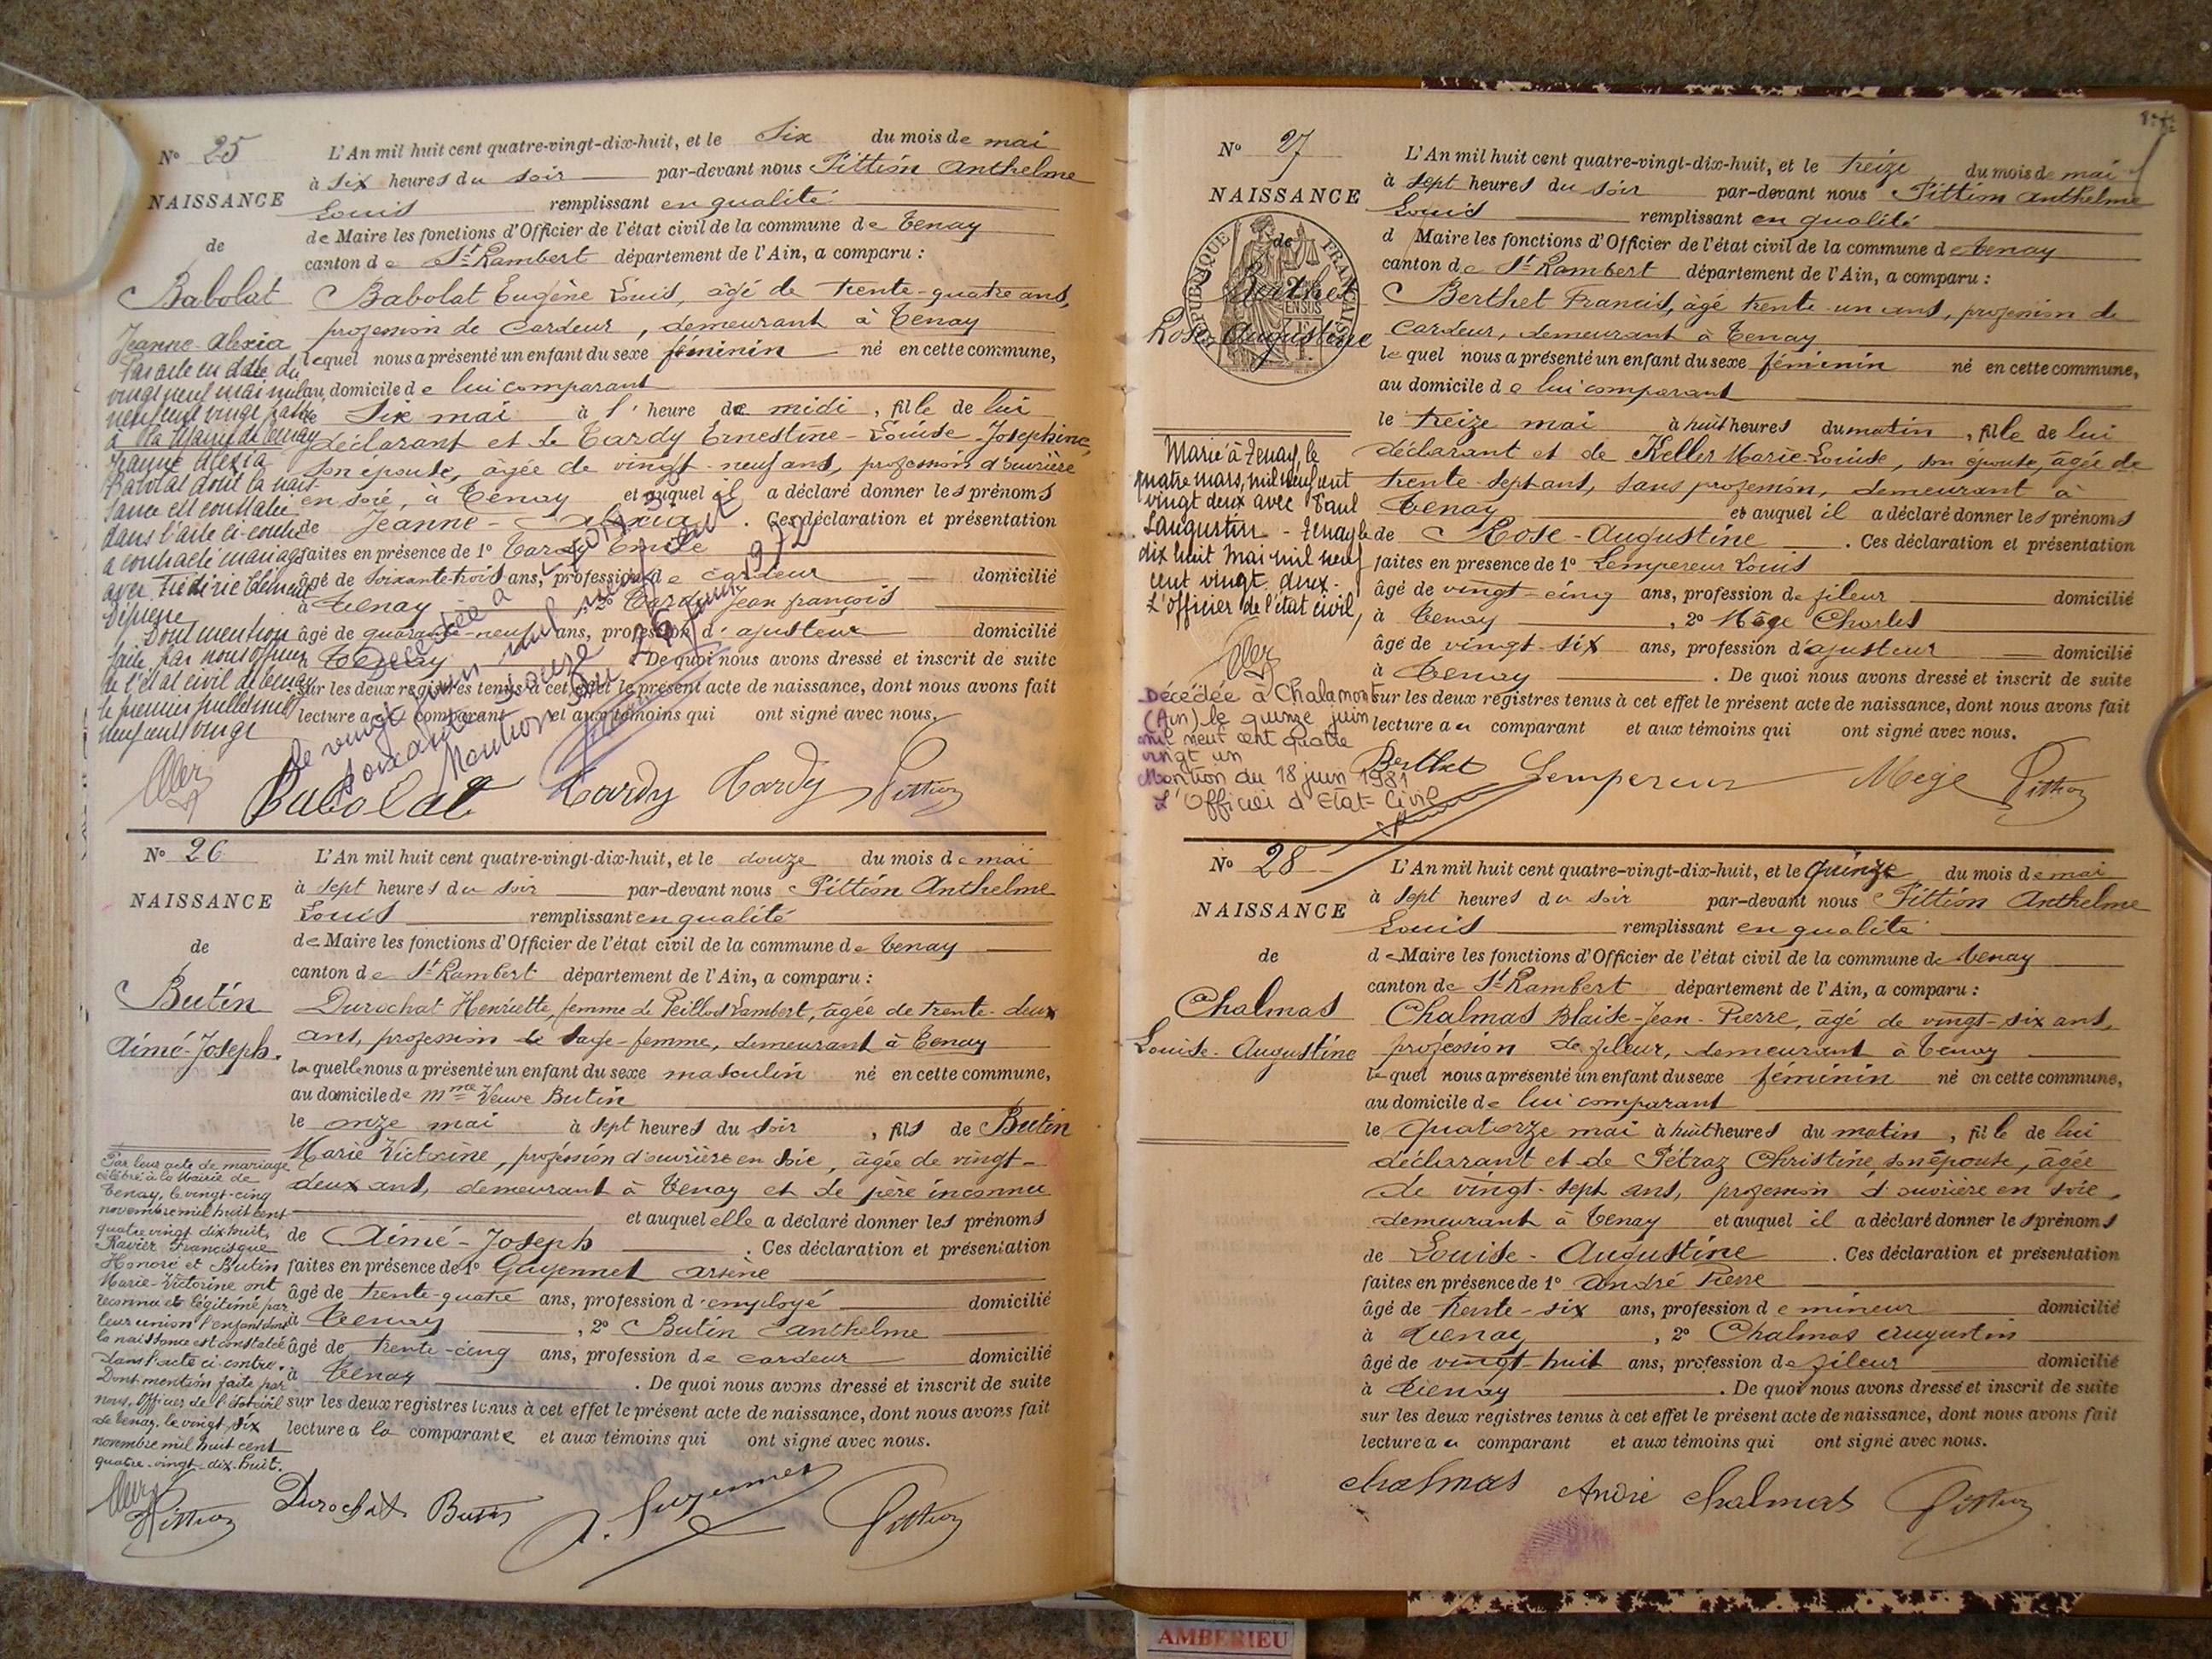 N° 25
NAISSANCE
de
Babolat
Jeanne-Alexia
L'An mil huit cent quatre-vingt-dix-huit, et le Six du mois de mai
à six heures du soir par-devant nous Pittion Anthelme
Louis remplissant en qualité
de Maire les fonctions d'Officier de l'état civil de la commune de Tenay
canton de St Rambert département de l'Ain, a comparu :
Babolat Eugène Louis, âgé de trente-quatre ans,
profession de Cardeur, demeurant à Tenay
lequel nous a présenté un enfant du sexe féminin né en cette commune,
au domicile de lui comparant
Six mai à l'heure de midi, fille de lui
déclarant et de Tardy Ernestine-Louise-Josephine,
son épouse, âgée de vingt-neuf ans, profession d'ouvrière
en soie, à Tenay et auquel il a déclaré donner les prénoms
de Jeanne-Alexia. Ces déclaration et présentation
faites en présence de 1° Tardy Emile
âgé de soixante-trois ans, profession de cardeur domicilié
à Tenay, 2° Tardy Jean françois
âgé de quarante-neuf ans, profession d'ajusteur domicilié
à Tenay. De quoi nous avons dressé et inscrit de suite
sur les deux registres tenus à cet effet le présent acte de naissance, dont nous avons fait
lecture au comparant et aux témoins qui ont signé avec nous.
Par acte en date du
vingt neuf mai mil
neuf cent vingt passé
à la Mairie de Tenay
Jeanne Alexia
Babolat dont la nais
sance est constatée
dans l'acte ci-contre
a contracté mariage
avec Frédéric Clément
Dépierre
Dont mention
faite par nous officier
de l'état civil de Tenay
le premier juillet mil
neuf cent vingt
Décédée à
le vingt juin mil neuf cent
soixante douze
Mention du 26 juin 1972
Babolat Tardy Tardy Pittion
N° 26
NAISSANCE
de
Butin
Aimé-Joseph.
L'An mil huit cent quatre-vingt-dix-huit, et le douze du mois de mai
à sept heures du soir par-devant nous Pittion Anthelme
Louis remplissant en qualité
de Maire les fonctions d'Officier de l'état civil de la commune de Tenay
canton de St Rambert département de l'Ain, a comparu :
Durochat Henriette, femme de Peillod Lambert, âgée de trente-deux
ans, profession de sage-femme, demeurant à Tenay
laquelle nous a présenté un enfant du sexe masculin né en cette commune,
au domicile de Mme Veuve Butin
le onze mai à sept heures du soir, fils de Butin
Marie Victorine, profession d'ouvrière en soie, âgée de vingt-
deux ans, demeurant à Tenay et de père inconnu
et auquel elle a déclaré donner les prénoms
de Aimé-Joseph. Ces déclaration et présentation
faites en présence de 1° Guyennet Arsène
âgé de trente-quatre ans, profession d'employé domicilié
à Tenay, 2° Butin Anthelme
âgé de trente-cinq ans, profession de cardeur domicilié
à Tenay. De quoi nous avons dressé et inscrit de suite
sur les deux registres tenus à cet effet le présent acte de naissance, dont nous avons fait
lecture a la comparante et aux témoins qui ont signé avec nous.
Par leur acte de mariage
célébré à la Mairie de
Tenay, le vingt-cinq
novembre mil huit cent
quatre vingt dix huit,
Ravier Francisque
Honoré et Butin
Marie-Victorine ont
reconnu et légitimé par
leur union l'enfant dont
la naissance est constatée
dans l'acte ci-contre.
Dont mention faite par
nous, Officier de l'état civil
de Tenay, le vingt-six
novembre mil huit cent
quatre-vingt-dix-huit.
Pittion Durochat Butin Guyennet Pittion
N° 27
NAISSANCE
de
REPUBLIQUE FRANCAISE
Berthet
Rose Augustine
L'An mil huit cent quatre-vingt-dix-huit, et le treize du mois de mai
à sept heures du soir par-devant nous Pittion Anthelme
Louis remplissant en qualité
d Maire les fonctions d'Officier de l'état civil de la commune de Tenay
canton de St Rambert département de l'Ain, a comparu :
Berthet Francis, âgé trente-un ans, profession de
cardeur, demeurant à Tenay
lequel nous a présenté un enfant du sexe féminin né en cette commune,
au domicile de lui comparant
le treize mai à huit heures du matin, fille de lui
déclarant et de Keller Marie-Louise, son épouse, âgée de
trente-sept ans, sans profession, demeurant à
Tenay et auquel il a déclaré donner les prénoms
de Rose-Augustine. Ces déclaration et présentation
faites en présence de 1° Lempereur Louis
âgé de vingt-cinq ans, profession de fileur domicilié
à Tenay, 2° Mége Charles
âgé de vingt-six ans, profession d'ajusteur domicilié
à Tenay. De quoi nous avons dressé et inscrit de suite
sur les deux registres tenus à cet effet le présent acte de naissance, dont nous avons fait
lecture au comparant et aux témoins qui ont signé avec nous.
Marié à Tenay, le
quatre mars, mil neuf cent
vingt deux avec Paul
Laugustin - Tenay le
dix huit mai mil neuf
cent vingt deux.
L'officier de l'état civil,
Décédée à Chalamont
(Ain) le quinze juin
mil neuf cent quatre
vingt un
Mention du 18 juin 1981
L'Officier d'Etat-Civil
Berthet Lempereur Mège Pittion
N° 28
NAISSANCE
de
Chalmas
Louise-Augustine
L'An mil huit cent quatre-vingt-dix-huit, et le Quinze du mois de mai
à sept heures du soir par-devant nous Pittion Anthelme
Louis remplissant en qualité
de Maire les fonctions d'Officier de l'état civil de la commune de Tenay
canton de St Rambert département de l'Ain, a comparu :
Chalmas Blaise-Jean-Pierre, âgé de vingt-six ans,
profession de fileur, demeurant à Tenay
lequel nous a présenté un enfant du sexe féminin né en cette commune,
au domicile de lui comparant
le Quatorze mai à huit heures du matin, fille de lui
déclarant et de Pétraz Christine son épouse, âgée
de vingt-sept ans, profession d'ouvrière en soie,
demeurant à Tenay et auquel il a déclaré donner les prénoms
de Louise-Augustine. Ces déclaration et présentation
faites en présence de 1° André Pierre
âgé de trente-six ans, profession de mineur domicilié
à Tenay, 2° Chalmas Augustin
âgé de vingt-huit ans, profession de fileur domicilié
à Tenay. De quoi nous avons dressé et inscrit de suite
sur les deux registres tenus à cet effet le présent acte de naissance, dont nous avons fait
lecture au comparant et aux témoins qui ont signé avec nous.
Chalmas André Chalmas Pittion
AMBERIEU